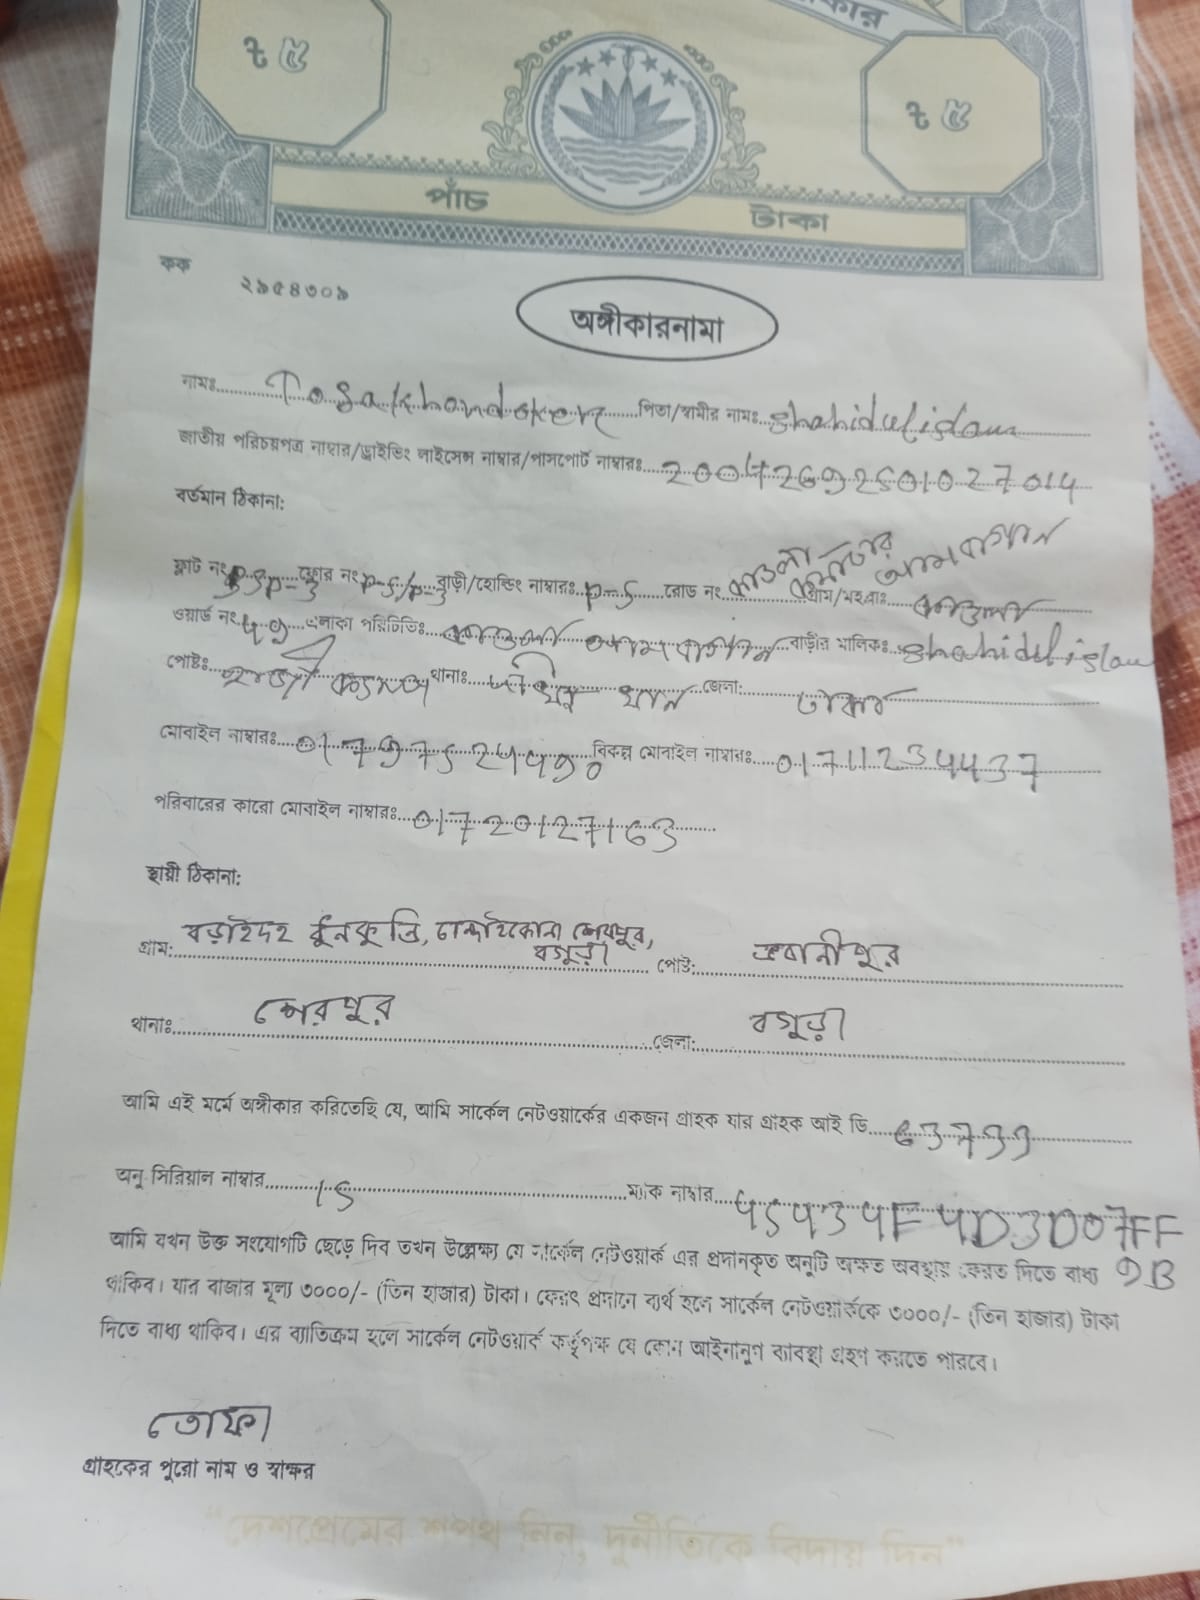 কার
৳ ৫
৳ ৫
পাঁচ টাকা
কক ২৯৫৪৩০৯
অঙ্গীকারনামা
নামঃ Tosa khandoker পিতা/স্বামীর নামঃ shahidul islam
জাতীয় পরিচয়পত্র নাম্বার/ড্রাইভিং লাইসেন্স নাম্বার/পাসপোর্ট নাম্বারঃ
বর্তমান ঠিকানা:
ফ্লাট নং ফ্লোর নং বাড়ী/হোল্ডিং নাম্বারঃ P-5 রোড নং কাওলা আমবাগান গ্রাম/মহল্লাঃ কাওলা
ওয়ার্ড নং ৪৯ এলাকা পরিচিতিঃ কাওলা আমবাগান বাড়ীর মালিকঃ shahidul islam
পোষ্টঃ হাজী ক্যাম্প থানাঃ দক্ষিণ খান জেলা: ঢাকা
মোবাইল নাম্বারঃ বিকল্প মোবাইল নাম্বারঃ 01711234437
পরিবারের কারো মোবাইল নাম্বারঃ 01720127163
স্থায়ী ঠিকানা:
গ্রাম: বড়াইদহ চান্দাইকোনা শেরপুর, বগুড়া পোষ্ট: ভবানীপুর
থানাঃ শেরপুর জেলা: বগুড়া
আমি এই মর্মে অঙ্গীকার করিতেছি যে, আমি সার্কেল নেটওয়ার্কের একজন গ্রাহক যার গ্রাহক আই ডি
অনু সিরিয়াল নাম্বার 15 ম্যাক নাম্বার
আমি যখন উক্ত সংযোগটি ছেড়ে দিব তখন উল্লেক্ষ্য যে সার্কেল নেটওয়ার্ক এর প্রদানকৃত অনুটি অক্ষত অবস্থায় ফেরত দিতে বাধ্য
থাকিব। যার বাজার মূল্য ৩০০০/- (তিন হাজার) টাকা। ফেরৎ প্রদানে ব্যর্থ হলে সার্কেল নেটওয়ার্ককে ৩০০০/- (তিন হাজার) টাকা
দিতে বাধ্য থাকিব। এর ব্যাতিক্রম হলে সার্কেল নেটওয়ার্ক কর্তৃপক্ষ যে কোন আইনানুগ ব্যাবস্থা গ্রহণ করতে পারবে।
তোফা
গ্রাহকের পুরো নাম ও স্বাক্ষর
“দেশপ্রেমের শপথ নিন, দুর্নীতিকে বিদায় দিন”